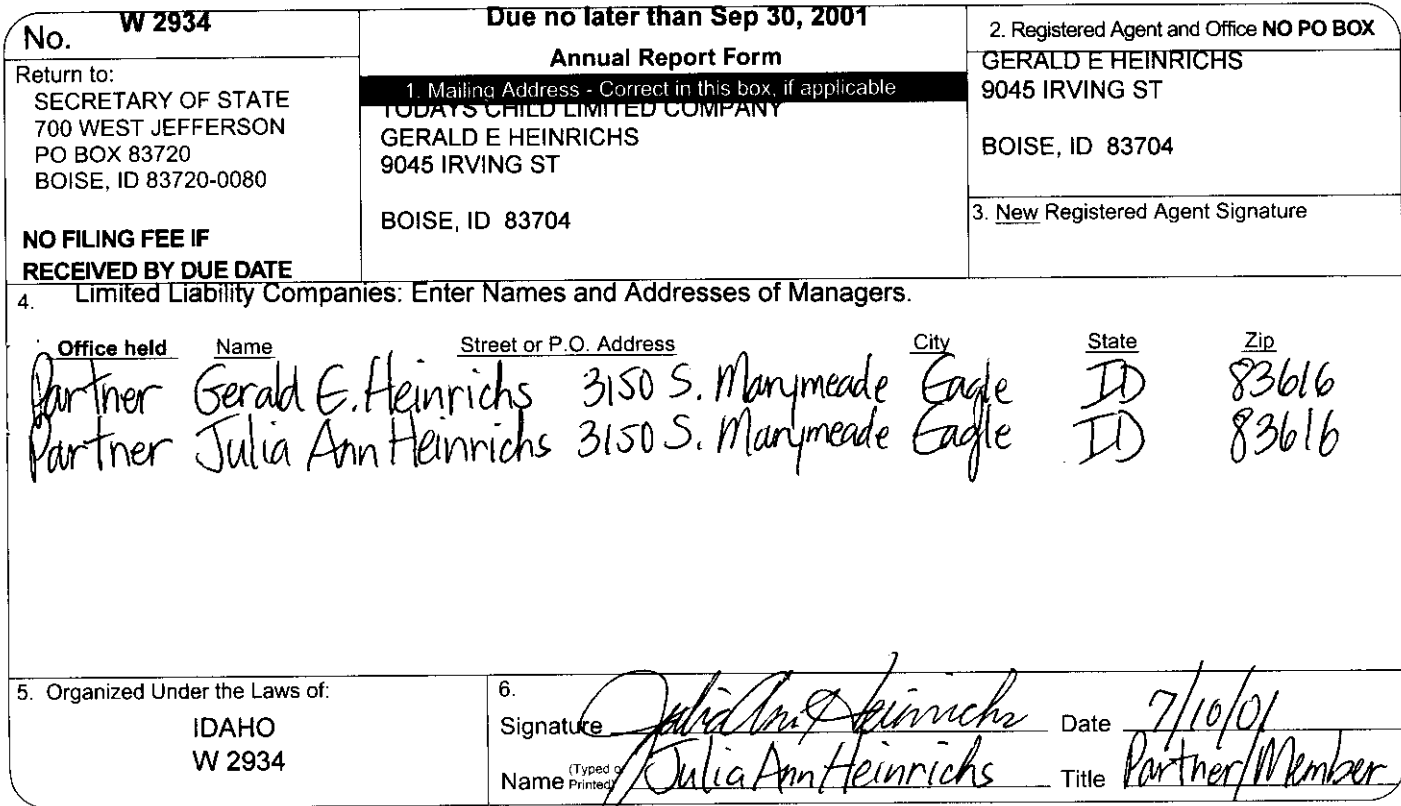 No. W 2934
Return to:
SECRETARY OF STATE
700 WEST JEFFERSON
PO BOX 83720
BOISE, ID 83720-0080
NO FILING FEE IF
RECEIVED BY DUE DATE
Due no later than Sep 30, 2001
Annual Report Form
1. Mailing Address - Correct in this box, if applicable
TODAYS CHILD LIMITED COMPANY
GERALD E HEINRICHS
9045 IRVING ST
BOISE, ID 83704
2. Registered Agent and Office NO PO BOX
GERALD E HEINRICHS
9045 IRVING ST
BOISE, ID 83704
3. New Registered Agent Signature
4. Limited Liability Companies: Enter Names and Addresses of Managers.
Office held Name Street or P.O. Address City State Zip
Partner Gerald E. Heinrichs 3150 S. Marymeade Eagle ID 83616
Partner Julia Ann Heinrichs 3150 S. Marymeade Eagle ID 83616
5. Organized Under the Laws of:
IDAHO
W 2934
6.
Signature Julia Ann Heinrichs Date 7/10/01
Name (Typed or Printed) Julia Ann Heinrichs Title Partner/Member